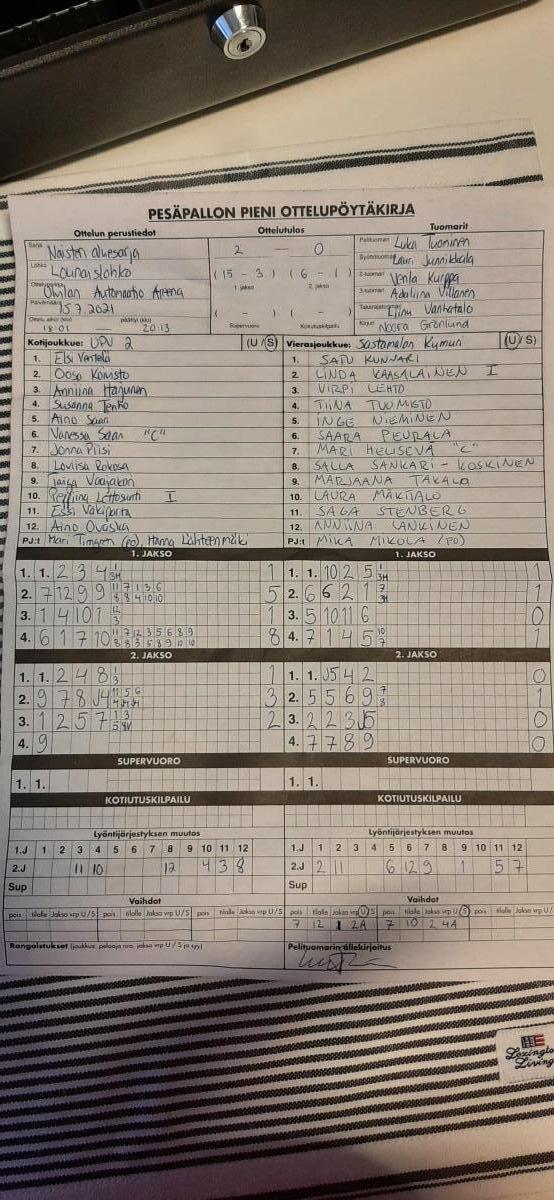 PESÄPALLON PIENI OTTELUPÖYTÄKIRJA
Ottelun perustiedot Ottelutulos Tuomarit
Sarja Naisten aluesarja 2 — 0 Pelituomari Luka Tuominen
Lohko Lounaislohko Syöttötuomari Lauri Junnikkala
(15 - 3) (6 - 1)
1. jakso 2. jakso
2-tuomari Venla Kurppa
Automaatio Areena 3-tuomari Adaliina
Päivämäärä 15.7.2021 ( - ) ( - ) Takarajatuomari Vanhatalo
18:01 — 20:13 Supervuoro Kotiutuskilpailu Kirjuri Noora Grönlund
Kotijoukkue: UPV 2 (U/S) Vierasjoukkue: Sastamalan (U/S)
1. Elsi 1. SATU KUNNARI
2. 2. LINDA KAASALAINEN I
3. Anniina 3. VIRPI LEHTO
4. Susanna Tenho 4. TIINA TUOMISTO
5. Aino Saari 5. INGE NIEMINEN
6. Vanessa Saari "C" 6. SAARA PEURALA
7. Jonna Piisi 7. MARI "C"
8. Loviisa 8. SALLA SANKARI - KOSKINEN
9. 9. MARJAANA TAKALA
10. I 10. LAURA MÄKITALO
11. Essi 11. SAGA STENBERG
12. Aino Ovaska 12. ANNIINA LANKINEN
PJ:t Mari (PO), Hanna Lähteenmäki PJ:t MIKA MIKOLA (PO)
1. JAKSO 1. JAKSO
1. 1. 2 3 4 1 3H 1 1. 1. 10 2 5 1 3H 1
2. 7 12 9 9 11 7 1 3 6 8 8 4 10 10 5 2. 6 6 2 1 7 3H 1
3. 1 4 10 1 12 3 1 3. 5 10 11 6 0
4. 6 1 7 10 11 7 12 3 5 6 8 9 8 8 3 5 8 9 10 10 8 4. 7 1 4 5 10 7 1
2. JAKSO 2. JAKSO
1. 1. 2 4 8 1 3 1 1. 1. J5 4 2 0
2. 9 7 8 J4 11 5 6 3 2. 5 5 6 9 7 8 1
3. 1 2 5 7 1 3 2 3. 2 2 3 J5 0
4. 9 4. 7 7 8 9 0
SUPERVUORO SUPERVUORO
1. 1. 1. 1.
KOTIUTUSKILPAILU KOTIUTUSKILPAILU
Lyöntijärjestyksen muutos Lyöntijärjestyksen muutos
1.J 1 2 3 4 5 6 7 8 9 10 11 12 1.J 1 2 3 4 5 6 7 8 9 10 11 12
2.J 11 10 12 4 3 8 2.J 2 11 6 12 9 1 5 7
Sup Sup
Vaihdot Vaihdot
pois tilalle Jakso vrp U / S pois tilalle Jakso vrp U / S pois tilalle Jakso vrp U / S pois tilalle Jakso vrp U / S
7 12 1 2A 7 10 2 4A
Rangaistukset (joukkue, pelaaja nro, jakso vrp U / S ja syy) Pelituomarin allekirjoitus
Lexington
Living